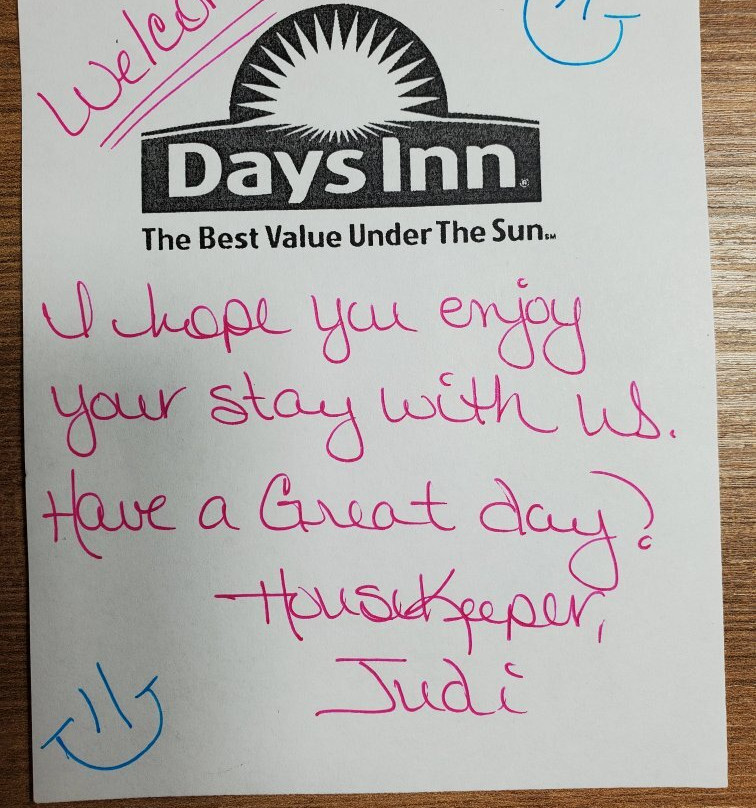 Welco
Days Inn®
The Best Value Under The Sun℠
I hope you enjoy
your stay with us.
Have a Great day?
Housekeeper,
Judi